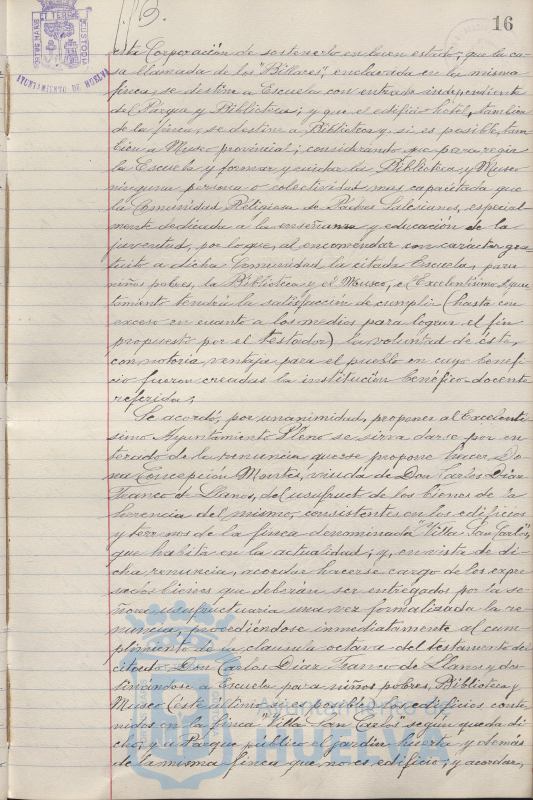 16
AYUNTAMIENTO DE HUELVA
esta Corporación de sostenerlo en buen estado; que la ca-
sa llamada de los "Billares", enclavada en la misma
finca, se destine a Escuela con entrada independiente
del Parque y Biblioteca; y que el edificio-hôtel, también
de la finca, se destine a Biblioteca y, si es posible, tam-
bién a Museo provincial; considerando que para regir
la Escuela y formar y cuidar la Biblioteca y Museo
ninguna persona o colectividad mas capacitada que
la Comunidad Religiosa de Padres Salesianos, especial-
mente dedicada a la enseñanza y educación de la
juventud, por lo que, al encomendar con carácter gra-
tuito a dicha Comunidad la citada Escuela, para
niños pobres, la Biblioteca y el Museo, el Excelentísimo Ayun-
tamiento tendrá la satisfacción de cumplir (hasta con
exceso en cuanto a los medios para lograr el fin
propuesto por el testador) la voluntad de éste,
con notoria ventaja para el pueblo en cuyo benefi-
cio fueron creadas la institución benéfico-docente
referida;
Se acordó, por unanimidad, proponer al Excelentí-
simo Ayuntamiento Pleno se sirva darse por en-
terado de la renuncia que se propone hacer Do-
ña Concepción Montes, viuda de Don Carlos Díaz
Franco de Llanos, del usufructo de los bienes de la
herencia del mismo, consistentes en los edificios
y terrenos de la finca denominada "Villa San Carlos",
que habita en la actualidad; y, en vista de di-
cha renuncia, acordar hacerse cargo de los expre-
sados bienes que deberán ser entregados por la se-
ñora usufructuaria una vez formalizada la re-
nuncia, procediéndose inmediatamente al cum-
plimiento de la cláusula octava del testamento del
citado Don Carlos Díaz Franco de Llanos y des-
tinándose a Escuela para niños pobres, Biblioteca y
Museo (este último si es posible) los edificios conte-
nidos en la finca "Villa San Carlos" según queda di-
cho, y a Parque público el jardín, huerta y demás
de la misma finca que no es edificio; y acordar,
Ayuntamiento
HUELVA